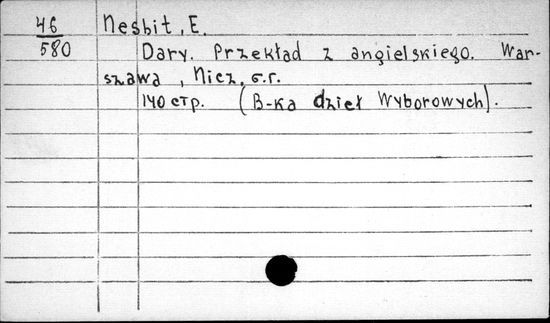 46 Nesbit, E.
580 Dary. Przekład z angielskiego. War-
szawa, Nicz, б.г.
140 стр. (B-ka dzieł Wyborowych).